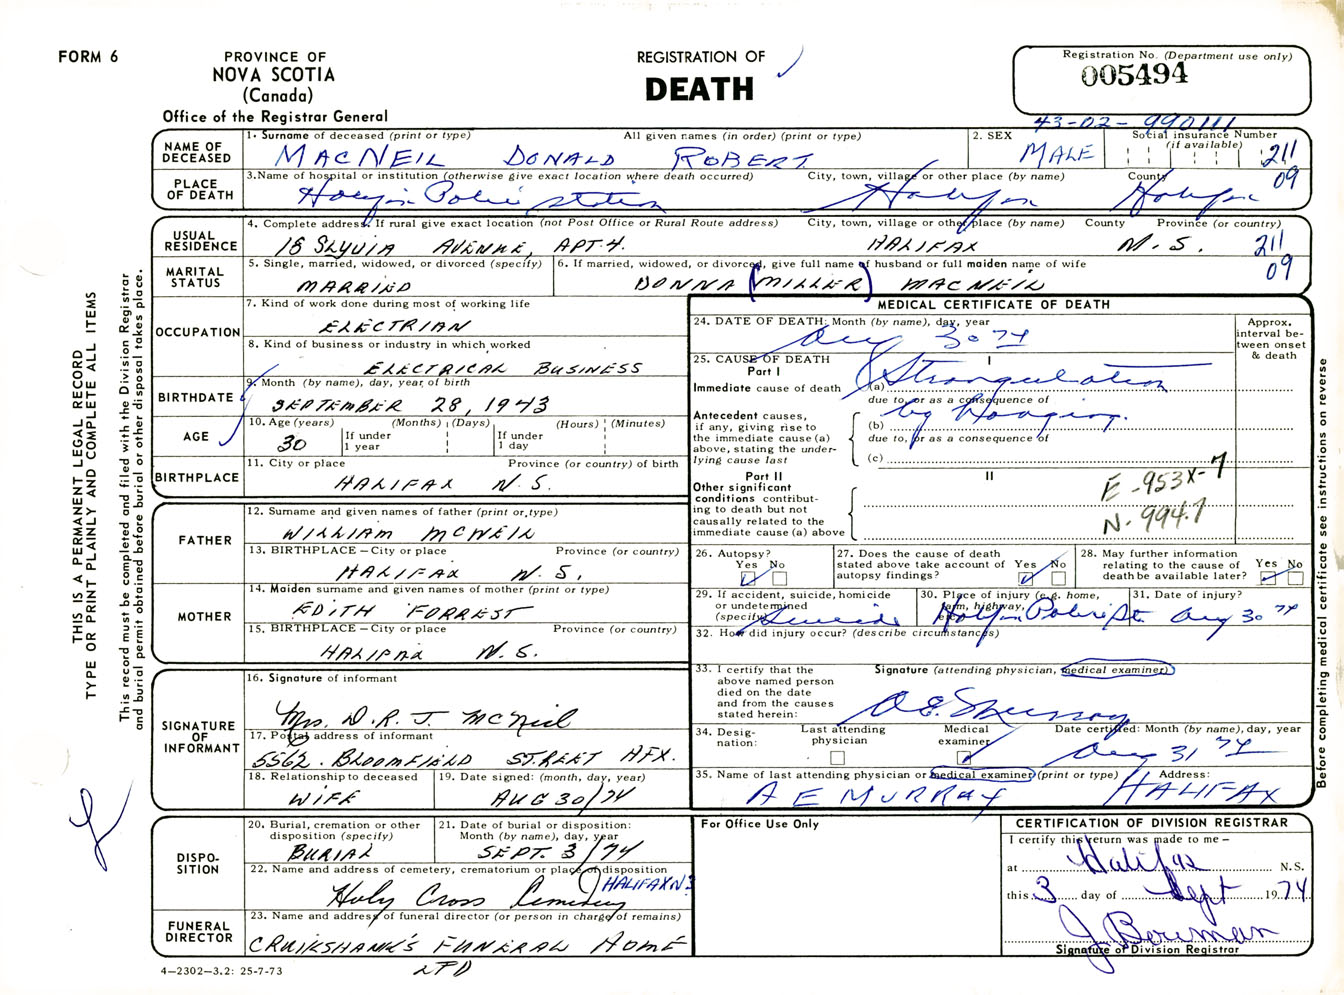 FORM 6
PROVINCE OF
NOVA SCOTIA
(Canada)
Office of the Registrar General
REGISTRATION OF
DEATH
Registration No. (Department use only)
005494
43-02-990111
THIS IS A PERMANENT LEGAL RECORD
TYPE OR PRINT PLAINLY AND COMPLETE ALL ITEMS
This record must be completed and filed with the Division Registrar
and burial permit obtained before burial or other disposal takes place.
NAME OF
DECEASED
1. Surname of deceased (print or type) All given names (in order) (print or type)
MACNEIL DONALD ROBERT
2. SEX
MALE
Social insurance Number
(if available)
211
09
PLACE
OF DEATH
3. Name of hospital or institution (otherwise give exact location where death occurred) City, town, village or other place (by name) County
Halifax Police station Halifax Halifax
USUAL
RESIDENCE
4. Complete address. If rural give exact location (not Post Office or Rural Route address) City, town, village or other place (by name) County Province (or country)
18 SLYVIA AVENUE, APT 4. HALIFAX N.S.
211
09
MARITAL
STATUS
5. Single, married, widowed, or divorced (specify)
MARRIED
6. If married, widowed, or divorced, give full name of husband or full maiden name of wife
DONNA (MILLER) MACNEIL
OCCUPATION
7. Kind of work done during most of working life
ELECTRIAN
8. Kind of business or industry in which worked
ELECTRICAL BUSINESS
BIRTHDATE
9. Month (by name), day, year of birth
SEPTEMBER 28, 1943
AGE
10. Age (years) (Months) (Days) (Hours) (Minutes)
30
If under
1 year
If under
1 day
BIRTHPLACE
11. City or place Province (or country) of birth
HALIFAX N.S.
FATHER
12. Surname and given names of father (print or type)
WILLIAM MCNEIL
13. BIRTHPLACE – City or place Province (or country)
HALIFAX N.S.
MOTHER
14. Maiden surname and given names of mother (print or type)
EDITH FORREST
15. BIRTHPLACE – City or place Province (or country)
HALIFAX N.S.
SIGNATURE
OF
INFORMANT
16. Signature of informant
Mrs. D.R.J. McNeil
17. Postal address of informant
5562 BLOOMFIELD STREET HFX.
18. Relationship to deceased
WIFE
19. Date signed: (month, day, year)
AUG 30/74
DISPO-
SITION
20. Burial, cremation or other
disposition (specify)
BURIAL
21. Date of burial or disposition:
Month (by name), day, year
SEPT. 3/74
22. Name and address of cemetery, crematorium or place of disposition
Holy Cross Cemetery HALIFAX NS
FUNERAL
DIRECTOR
23. Name and address of funeral director (or person in charge of remains)
CRUIKSHANK'S FUNERAL HOME
LTD
4–2302–3.2: 25-7-73
MEDICAL CERTIFICATE OF DEATH
24. DATE OF DEATH: Month (by name), day, year
Aug 30 74
Approx.
interval be-
tween onset
& death
25. CAUSE OF DEATH
Part I
I
Immediate cause of death
(a) Strangulation
due to, or as a consequence of
Antecedent causes,
if any, giving rise to
the immediate cause (a)
above, stating the under-
lying cause last
(b) by Hanging.
due to, or as a consequence of
(c)
Part II
II
Other significant
conditions contribut-
ing to death but not
causally related to the
immediate cause (a) above
E-953X-7
N-994.7
26. Autopsy?
Yes No
27. Does the cause of death
stated above take account of
autopsy findings?
Yes No
28. May further information
relating to the cause of
death be available later?
Yes No
29. If accident, suicide, homicide
or undetermined
(specify)
Suicide
30. Place of injury (e.g. home,
farm, highway,
Halifax Police St.
31. Date of injury?
Aug 30 74
32. How did injury occur? (describe circumstances)
33. I certify that the
above named person
died on the date
and from the causes
stated herein:
Signature (attending physician, medical examiner)
A E Murray
34. Desig-
nation:
Last attending
physician
Medical
examiner
Date certified: Month (by name), day, year
Aug 31 74
35. Name of last attending physician or medical examiner (print or type) Address:
A E MURRAY HALIFAX
Before completing medical certificate see instructions on reverse
For Office Use Only
CERTIFICATION OF DIVISION REGISTRAR
I certify this return was made to me –
at Halifax N.S.
this 3 day of Sept 1974
J Bowman
Signature of Division Registrar